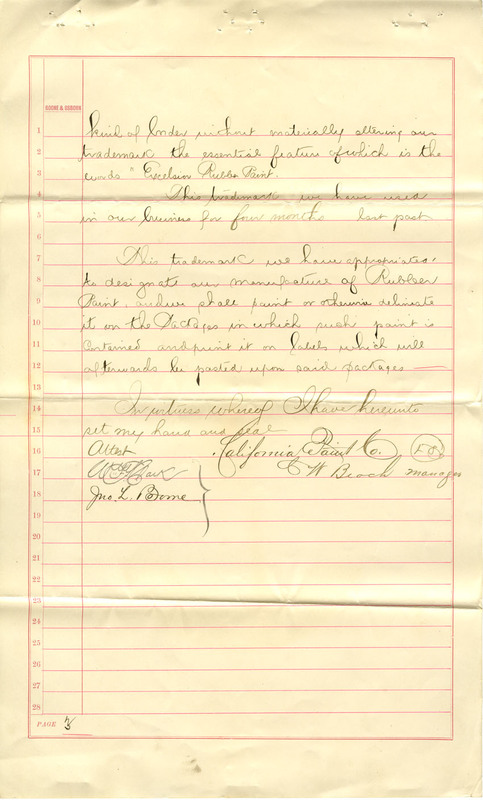 GOORE & OSBORN
1 kind of border without materially altering our
2 trademark the essential feature of which is the
3 words "Excelsior Rubber Paint.
4 This trademark we have used
5 in our business for four months last past
6
7 This trademark we have appropriated
8 to designate our manufacture of Rubber
9 Paint, and we shall paint or otherwise deliniate
10 it on the Packages in which such paint is
11 Contained and print it on labels which will
12 afterwards be pasted upon said packages —
13
14 In witness whereof I have hereunto
15 set my hand and seal
16 Attest California Paint Co. L.S.
17 Clark E W Beach manager
18 Jno. L. Boone
19
20
21
22
23
24
25
26
27
28
PAGE